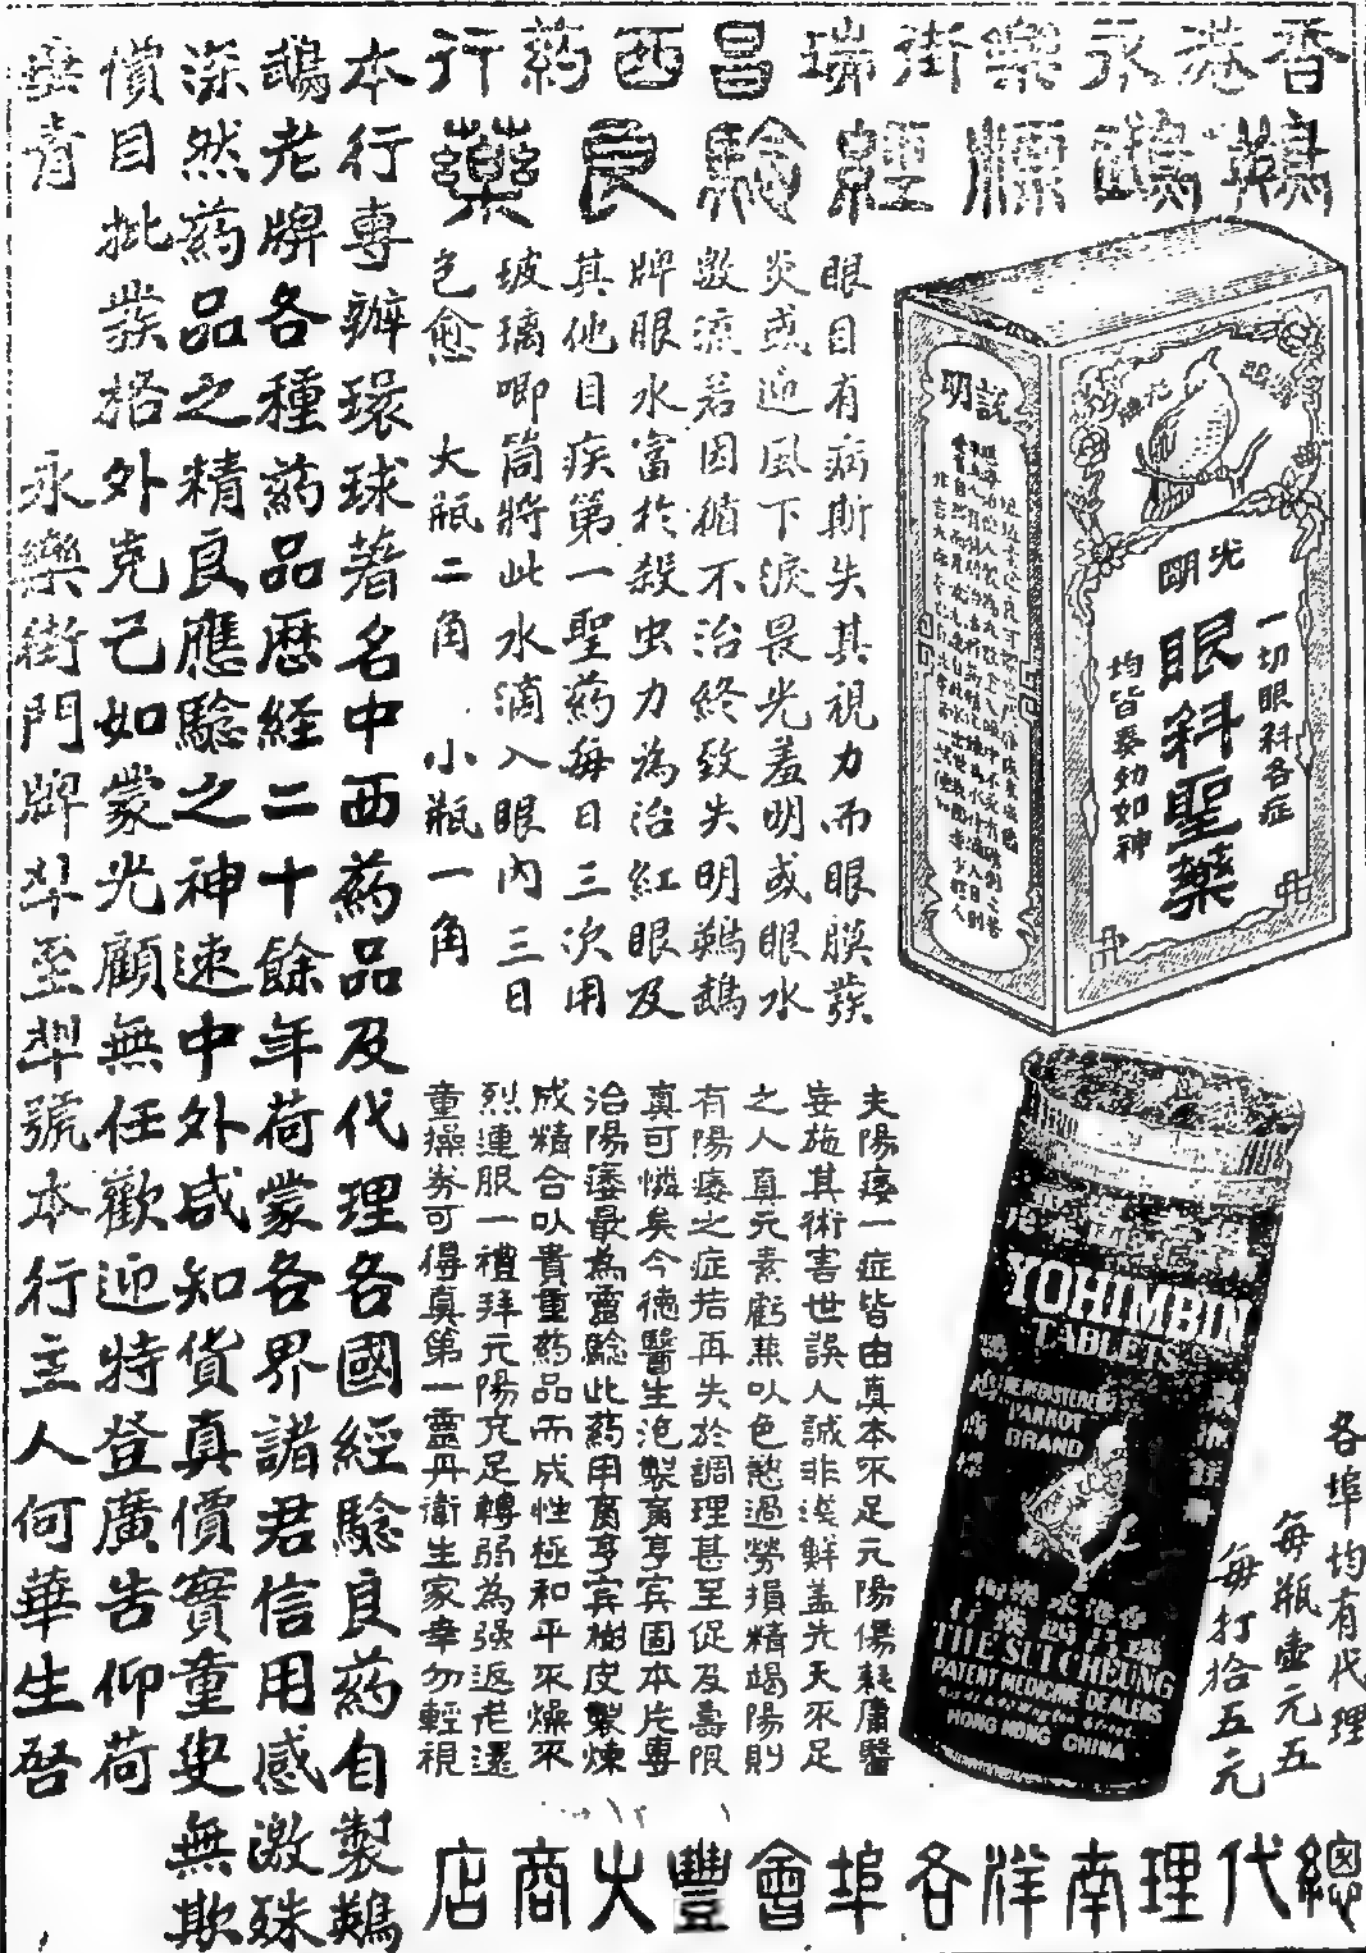 香港永樂街瑞昌西药行
鸚鵡牌經驗良藥
眼目有病斯失其視力而眼膜發
炎或迎風下淚畏光羞明或眼水
激流若因循不治終致失明鸚鵡
牌眼水富於殺虫力為治紅眼及
其他目疾第一聖药每日三次用
玻璃唧筒將此水滴入眼內三日
包愈 大瓶二角 小瓶一角
說明
光明
一切眼科各症
眼科聖藥
均皆奏効如神
夫陽痿一症皆由真本不足元陽傷耗庸醫
妄施其術害世誤人誠非淺鮮盖先天不足
之人真元素虧兼以色慾過勞損精竭陽則
有陽痿之症拮再失於調理甚至促及壽限
真可憐矣今德醫生泡製育亨宾固本片專
治陽痿最為靈驗此药用育亨宾樹皮製煉
成精合以貴重药品而成性極和平不燥不
烈連服一禮拜元陽充足轉弱為强返老還
童操券可得真第一靈丹衛生家幸勿輕視
YOHIMBIN
TABLETS
THE REGISTERED
PARROT
BRAND
香港永樂街
瑞昌西药行
THE SUI CHEUNG
PATENT MEDICINE DEALERS
HONG KONG CHINA
各埠均有代理
每瓶壹元五
每打拾五元
本行專辦環球著名中西药品及代理各國經驗良药自製鸚
鵡老牌各種药品歷経二十餘年荷蒙各界諸君信用感激殊
深然药品之精良應驗之神速中外咸知貨真價實童叟無欺
價目批發格外克己如蒙光顧無任歡迎特登廣告仰荷
垂青 永樂街門牌 至 號本行主人何華生啓
總代理南洋各埠會豐大商店